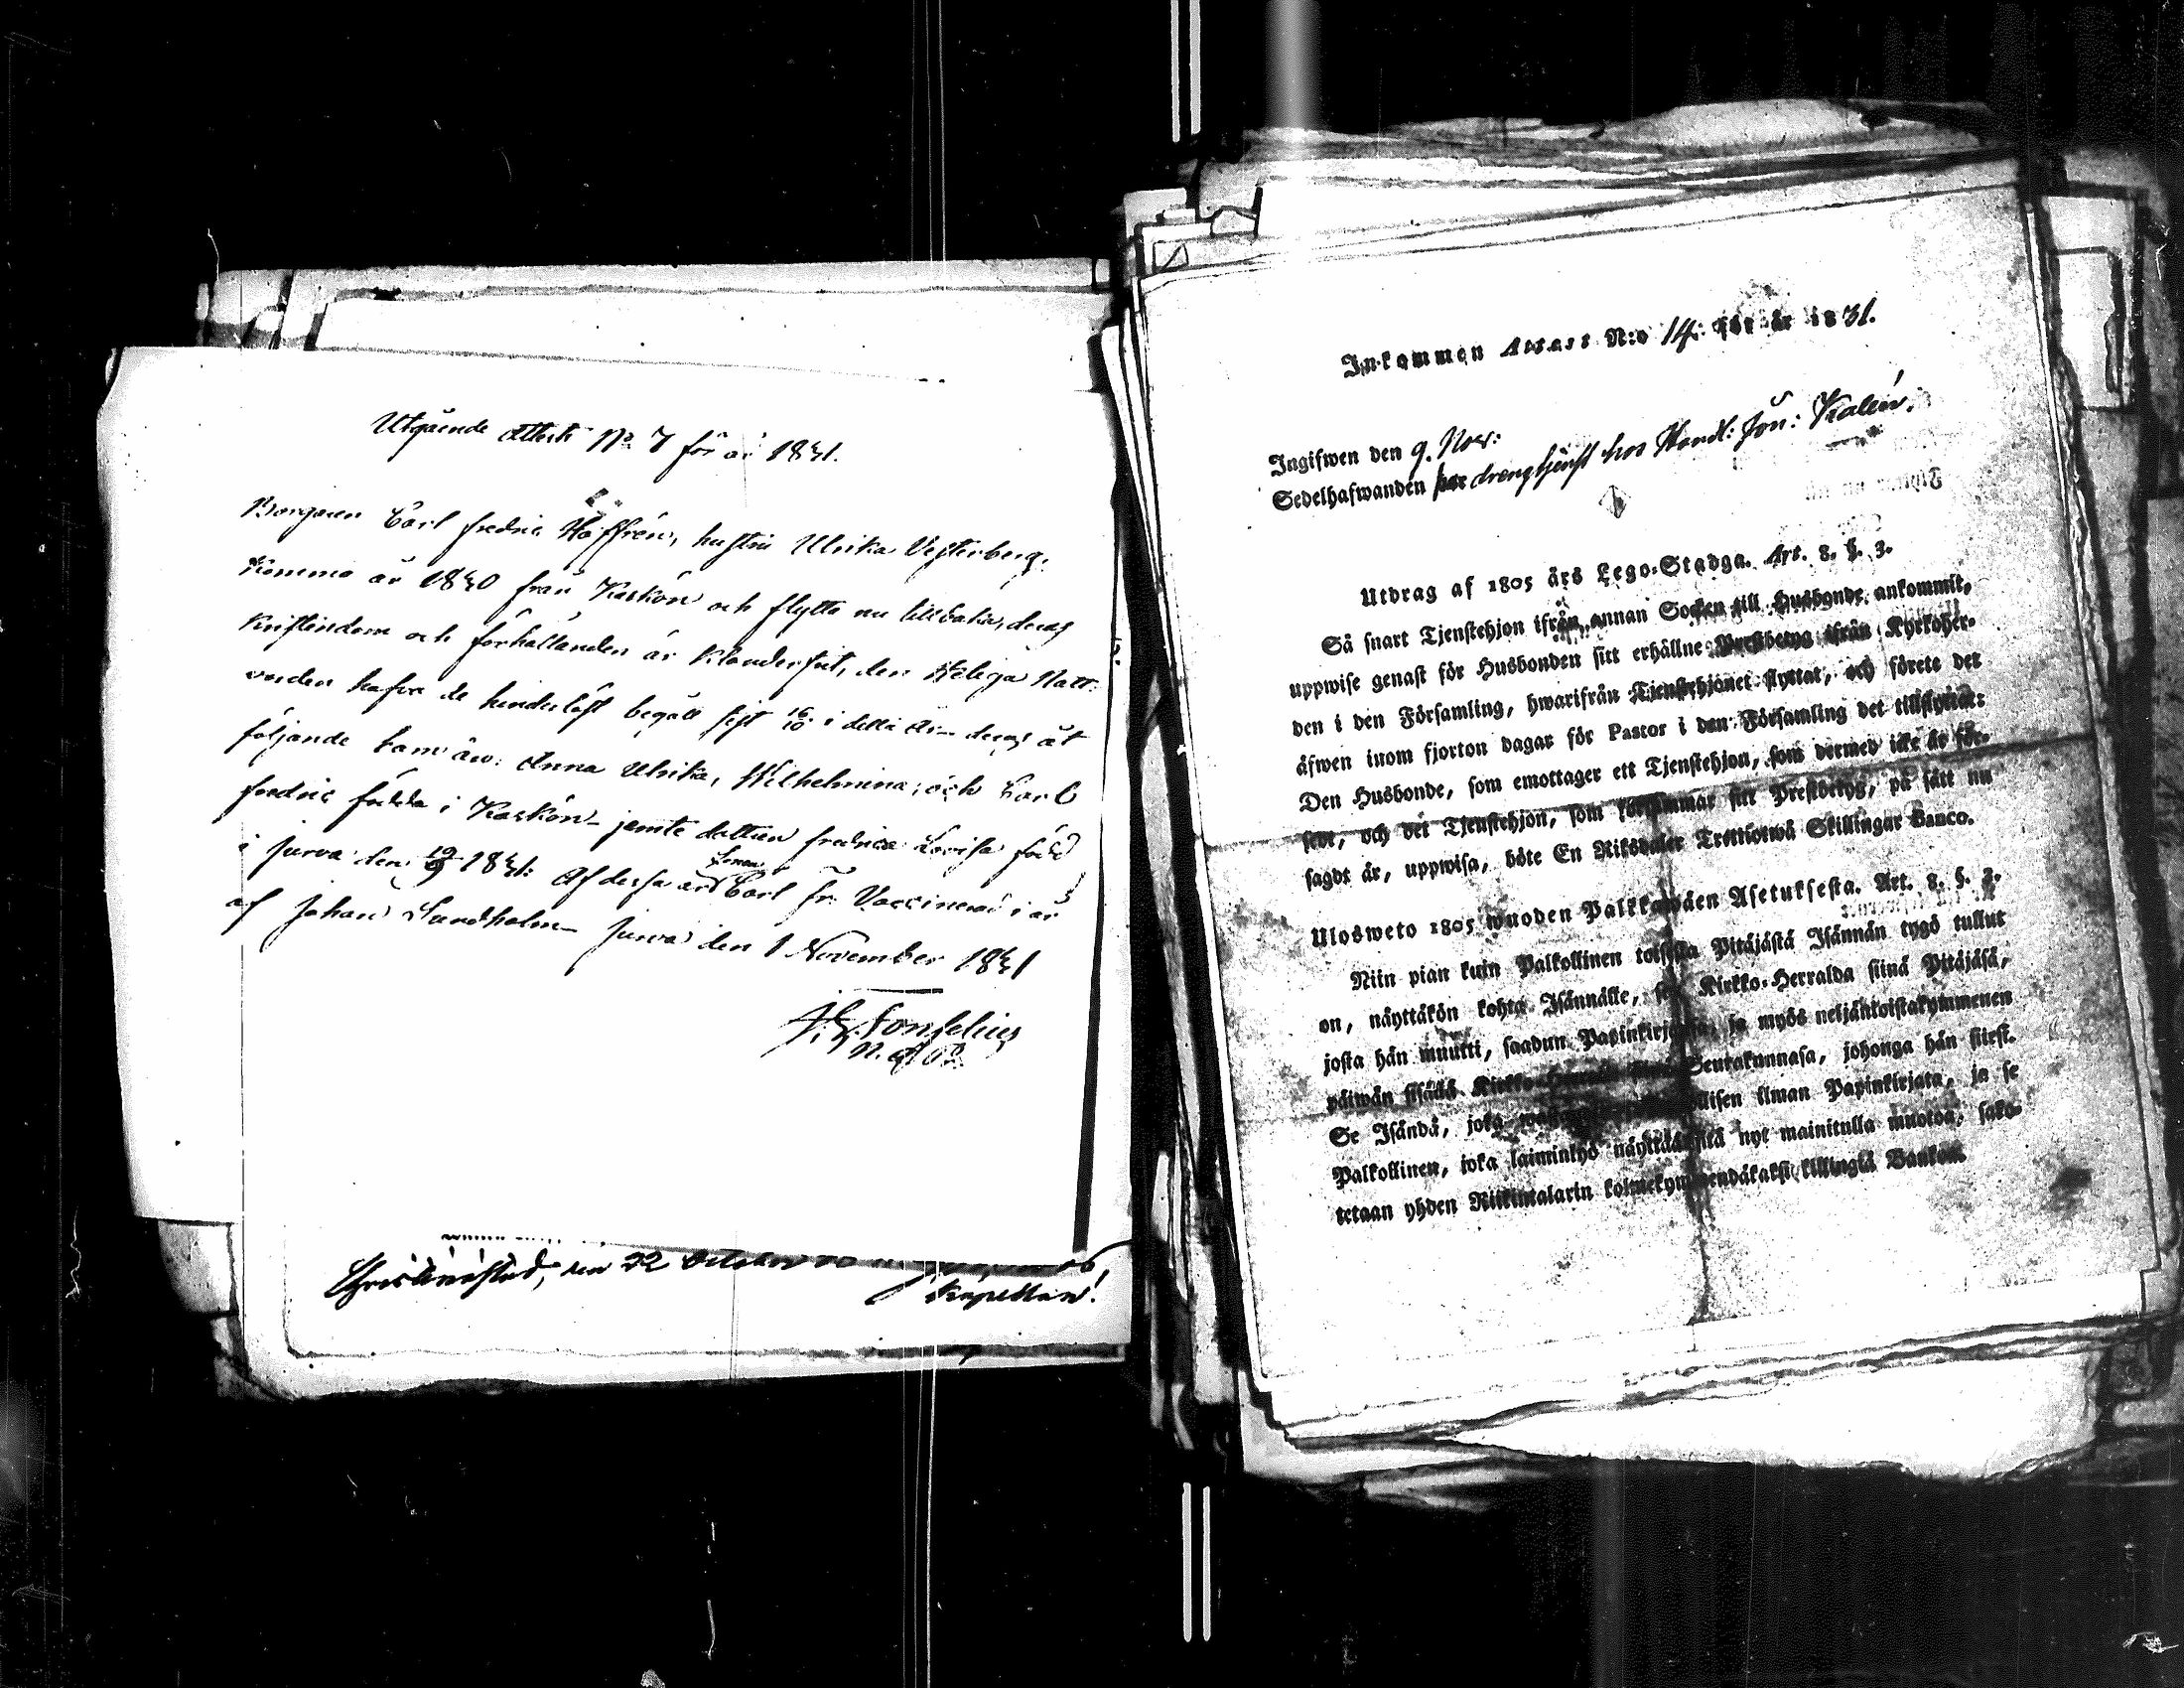 Utgående Attest No 7 för år 1831.
Borgaren Carl Fredric Höffrén, hustru Ulrika Vesterberg,
komma år 1830 från Kaskön och flytta nu tillbaka, deras
Kristindom och förhållanden är Klanderfritt, den Heliga Natt-
varden hafva de hinderlöst begått sist 16/10 i detta år deras
följande barn äro: Anna Ulrika, Wilhelmina, och Carl
Fredric födda i Kaskön jemte dottren Fredrica Lovisa född
i Jurva den 19/9 1831. Af dessa är Carl Fr. Vaccinerad i år
af Johan Sundholm Jurva den 1 November 1831
Christinestad, den 22 October
Kapellan!
Inkommen Attest N:o 14. för år 1831.
Ingifwen den 9. Nov:
Sedelhafwanden har drengtjenst hos Handl: Jon: Kalén.
Utdrag af 1805 års Lego-Stadga. Art. 8. §. 3.
Så snart Tjenstehjon ifrån annan Socken till Husbonde ankommit,
uppwise genast för Husbonden sitt erhållne Prestbetyg ifrån Kyrkoher-
den i den Församling, hwarifrån Tjenstehjonet flyttat, och förete det
äfwen inom fjorton dagar för Pastor i den Församling det tillflyttat:
Den Husbonde, som emottager ett Tjenstehjon, som dermed icke är för-
sedt, och det Tjenstehjon, som försummar sitt Prestbetyg, på sätt nu
sagdt är, uppwisa, böte En Riksdaler Trettiotwå Skillingar Banco.
Ulosweto 1805 wuoden Palkkawäen Asetuksesta. Art. 8. §. 3.
Niin pian kuin Palkollinen toisesta Pitäjästä Isännän tygö tullut
on, näyttäkön kohta Isännälle, se Kirkko-Herralda siinä Pitäjäsä,
josta hän muutti, saadun Papinkirjansa, ja myös neljäntoistakymmenen
päiwän sisällä Kirkko-Herralle siinä Seurakunnasa, johonga hän siirsi.
Se Isändä, joka Palkollisen ilman Papinkirjata, ja se
Palkollinen, joka laiminlyö näyttää sitä nyt mainitulla muotoa, sako-
tetaan yhden Riikintalarin kolmekymmendäkaksi killingiä Bankosa.